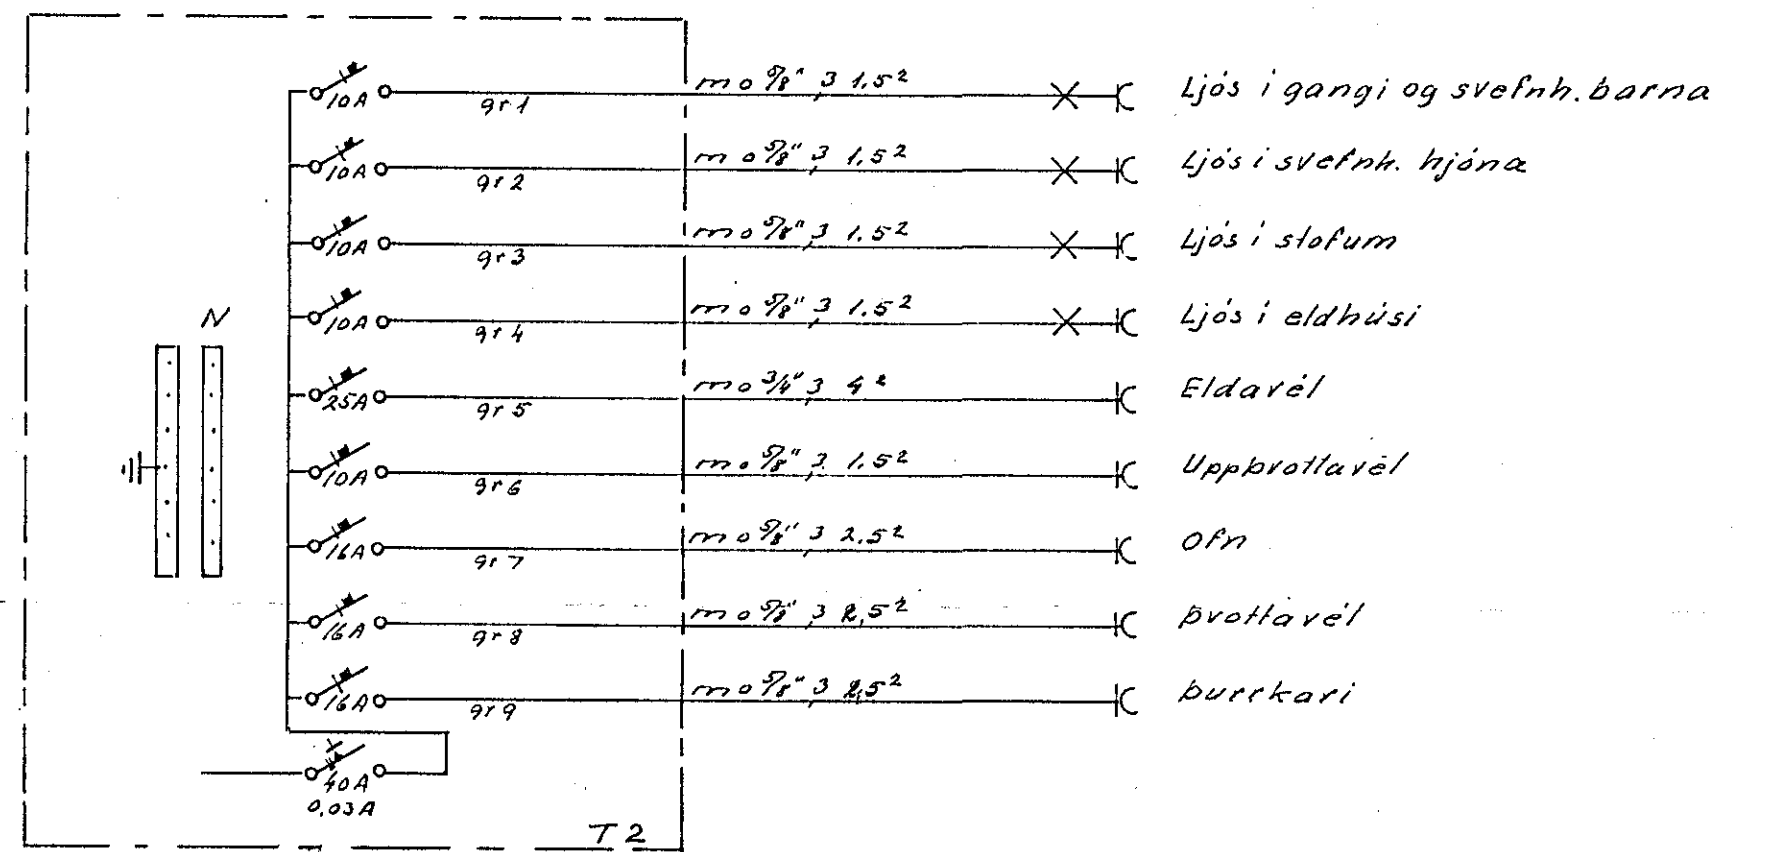 m o 5/8" 3 1.5² Ljós í gangi og svefnh. barna
10A gr 1
m o 5/8" 3 1.5² Ljós í svefnh. hjóna
10A gr 2
m o 5/8" 3 1.5² Ljós í stofum
10A gr 3
m o 5/8" 3 1.5² Ljós í eldhúsi
N
10A gr 4
m o 3/4" 3 4² Eldavél
25A gr 5
m o 5/8" 3 1.5² Uppþvottavél
10A gr 6
m o 5/8" 3 2.5² Ofn
16A gr 7
m o 5/8" 3 2,5² Þvottavél
16A gr 8
m o 5/8" 3 2,5² Þurrkari
16A gr 9
40A
0,03A
T 2